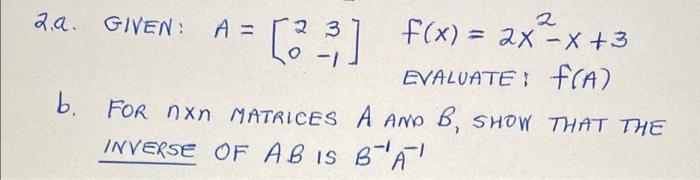 2.a. GIVEN: A = [2 3
0 -1] f(x) = 2x² - x + 3
EVALUATE: f(A)
b. FOR nxn MATRICES A AND B, SHOW THAT THE
INVERSE OF AB IS B⁻¹A⁻¹